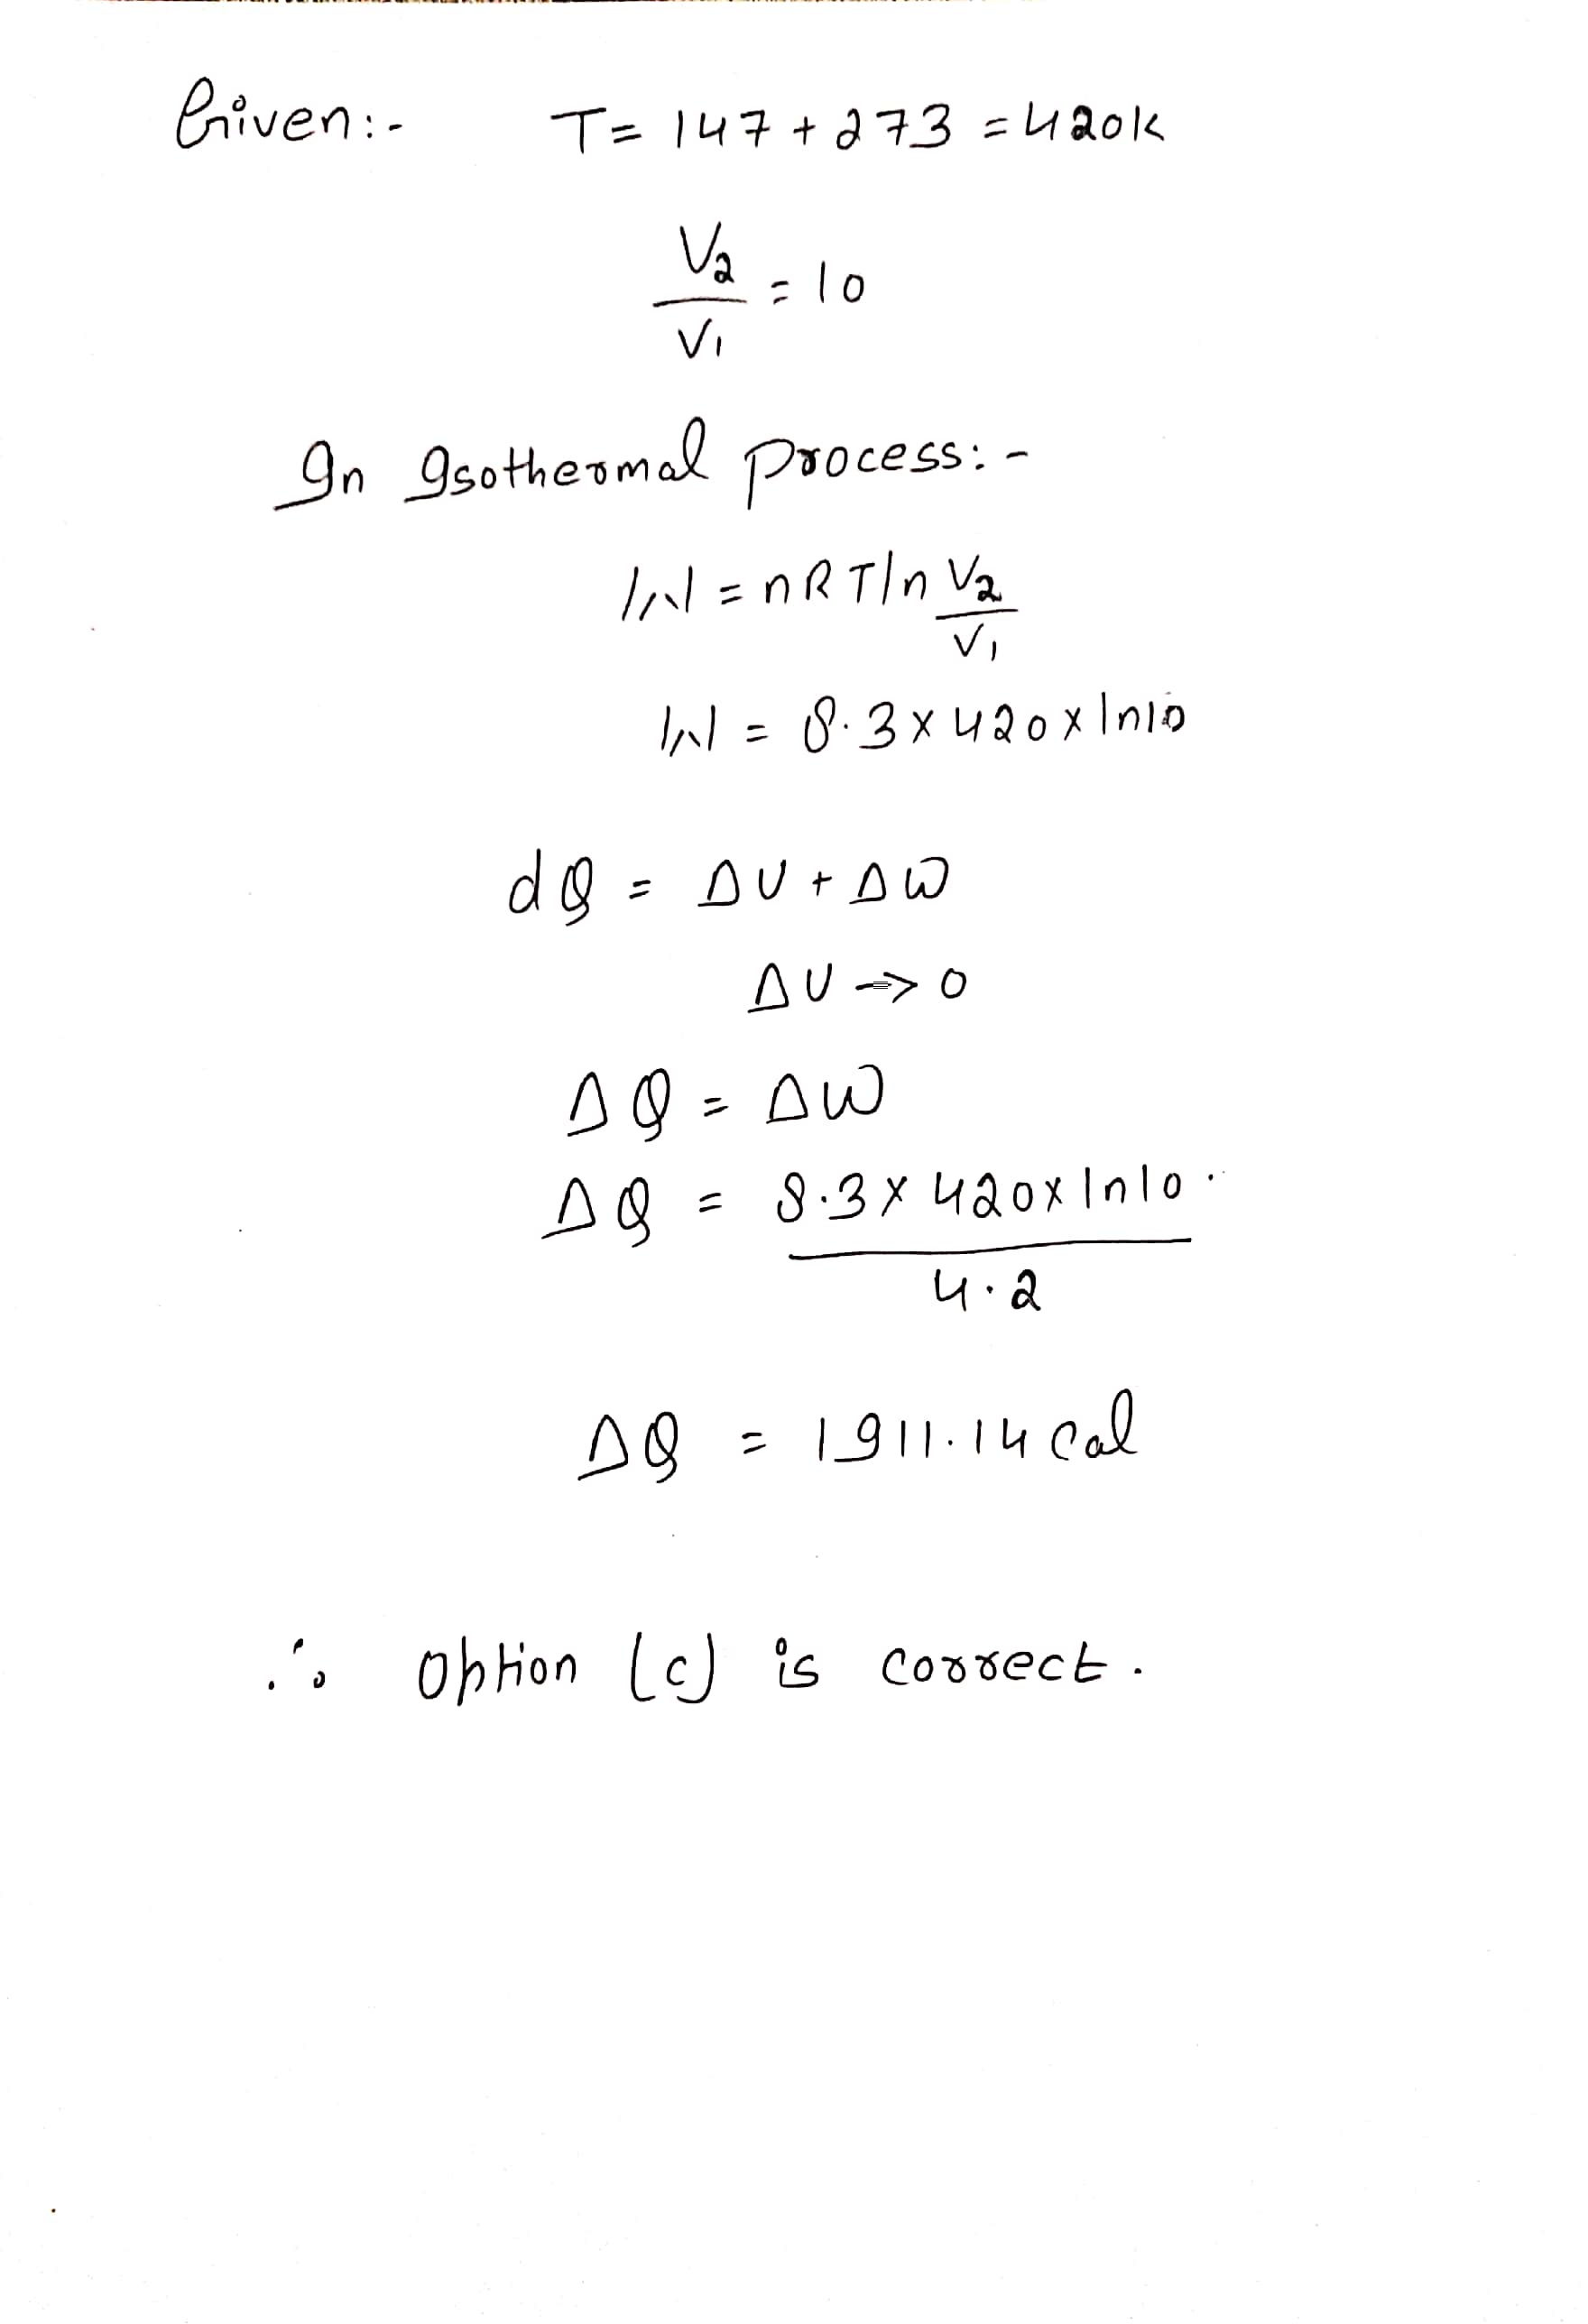 Given:- T = 147 + 273 = 420K
V2/V1 = 10
In Isothermal process:-
W = nRT ln V2/V1
W = 8.3 x 420 x ln10
dQ = ΔU + ΔW
ΔU -> 0
ΔQ = ΔW
ΔQ = 8.3 x 420 x ln10 / 4.2
ΔQ = 1911.14 Cal
∴ Option (c) is correct.